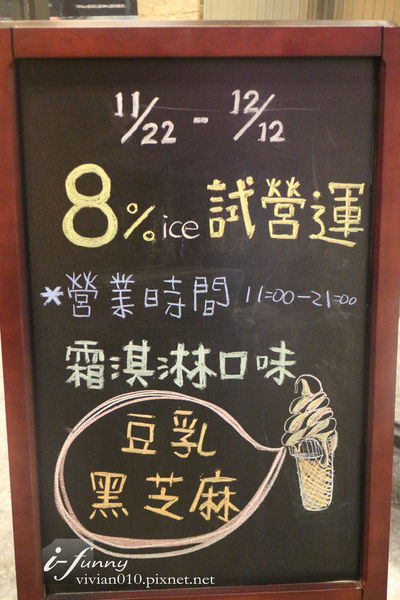 11/22 - 12/12
8% ice 試營運
*營業時間 11:00-21:00
霜淇淋口味
豆乳
黑芝麻
i-funny
vivian010.pixnet.net